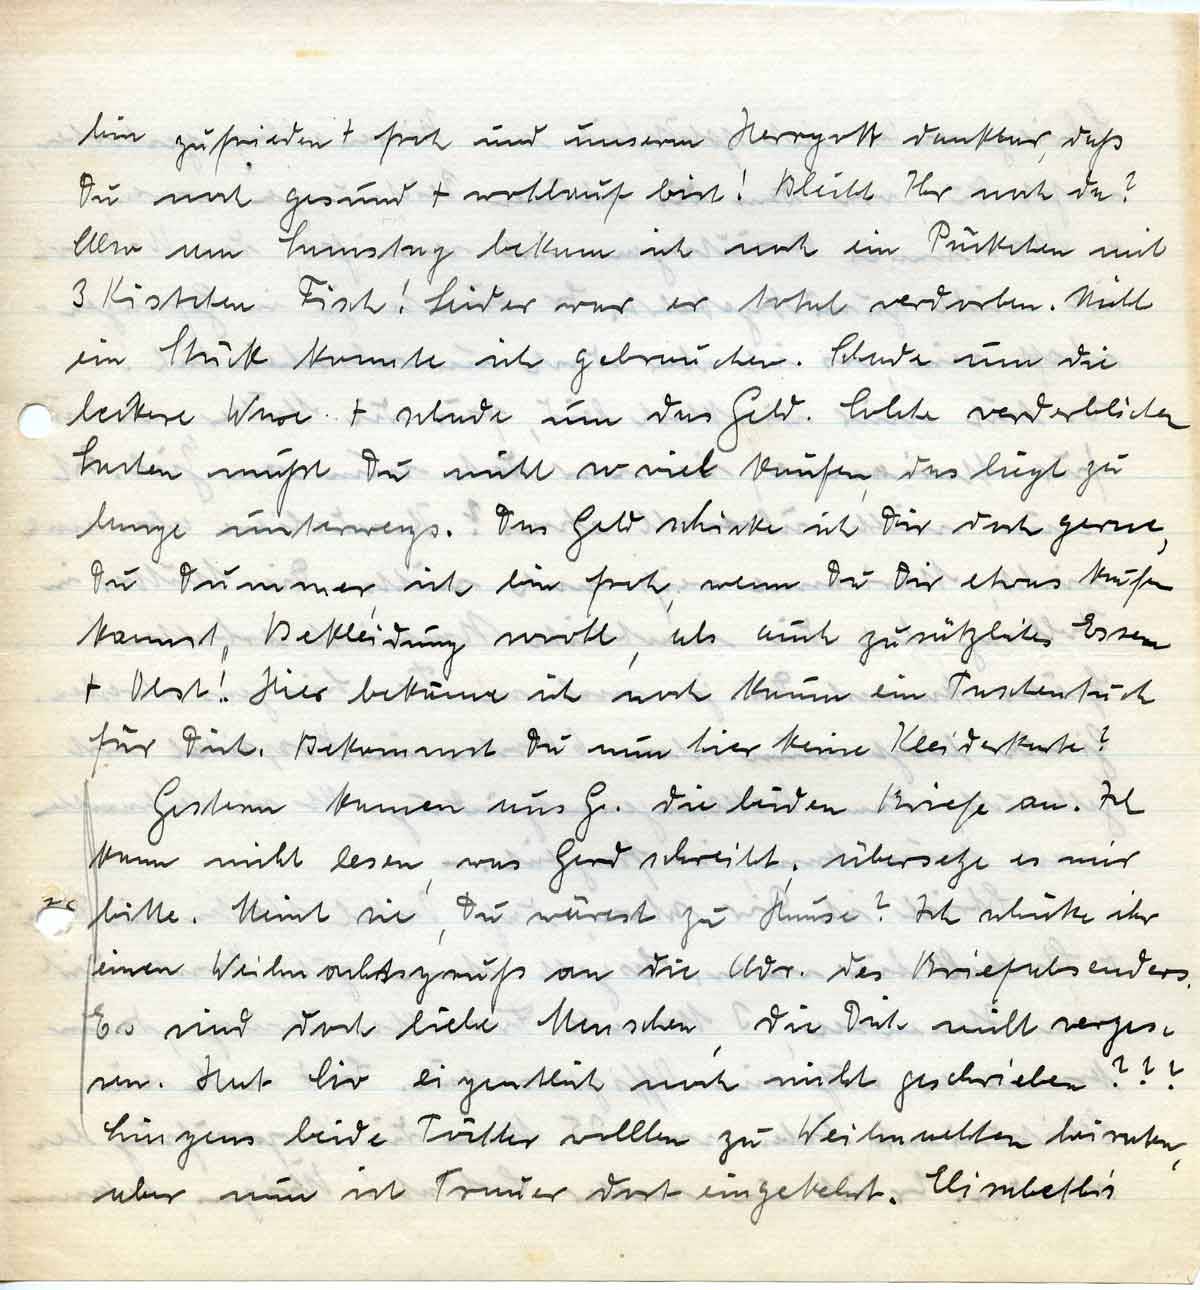 bin zufrieden + froh und unserm Herrgott dankbar, daß
Du noch gesund + wohlauf bist! Bleibt Ihr noch da?
Also am Samstag bekam ich noch ein Päckchen mit
3 Kistchen Fisch! Leider war er total verdorben. Nicht
ein Stück konnte ich gebrauchen. Schade um die
leckere Ware + schade um das Geld. Solche verderblichen
Sachen mußt Du nicht so viel kaufen, das liegt zu
lange unterwegs. Das Geld schicke ich Dir doch gerne,
Du Dummer, ich bin froh, wenn Du Dir etwas kaufen
kannst, Bekleidung sowohl, als auch zusätzliches Essen
+ Obst! Hier bekäme ich noch kaum ein Taschentuch
für Dich. Bekommst Du nun hier keine Kleiderkarte?
Gestern kamen aus G. die beiden Briefe an. Ich
kann nicht lesen, was Gerd schreibt, übersetze es mir
bitte. Meint sie, Du wärest zu Hause? Ich schicke ihr
einen Weihnachtsgruß an die Adr. des Briefabsenders.
Es sind doch liebe Menschen, die Dich nicht verges-
sen. Hat Liv eigentlich noch nicht geschrieben???
Lingens beide Töchter wollten zu Weihnachten heiraten,
aber nun ist Trauer dort eingekehrt. Elisabeths